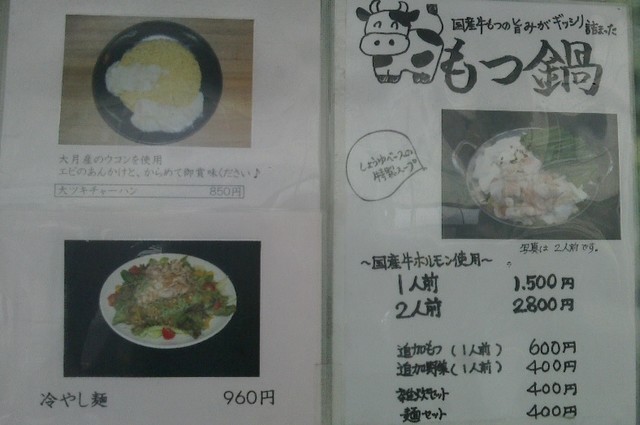 大月産のウコンを使用
エビのあんかけと、からめて御賞味ください♪
大ツキチャーハン 850円
冷やし麺 960円
国産牛もつの旨みがギッシリ詰まった
もつ鍋
しょうゆベースの
特製スープ
写真は2人前です。
～国産牛ホルモン使用～
1人前 1.500円
2人前 2800円
追加もつ(1人前) 600円
追加野菜(1人前) 400円
雑炊セット 400円
麺セット 400円